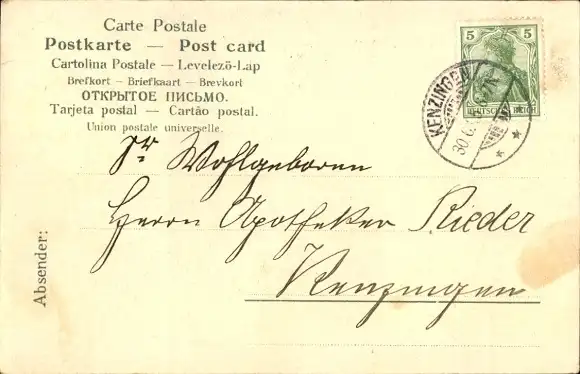 Carte Postale
Postkarte — Post card
Cartolina Postale — Levelező-Lap
Brefkort — Briefkaart — Brevkort
ОТКРЫТОЕ ПИСЬМО.
Tarjeta postal — Cartão postal.
Union postale universelle.
5 5
DEUTSCHES REICH
KENZINGEN
30.6.
Sr. Wohlgeboren
Herrn Apotheker Rieder
Kenzingen
Absender: